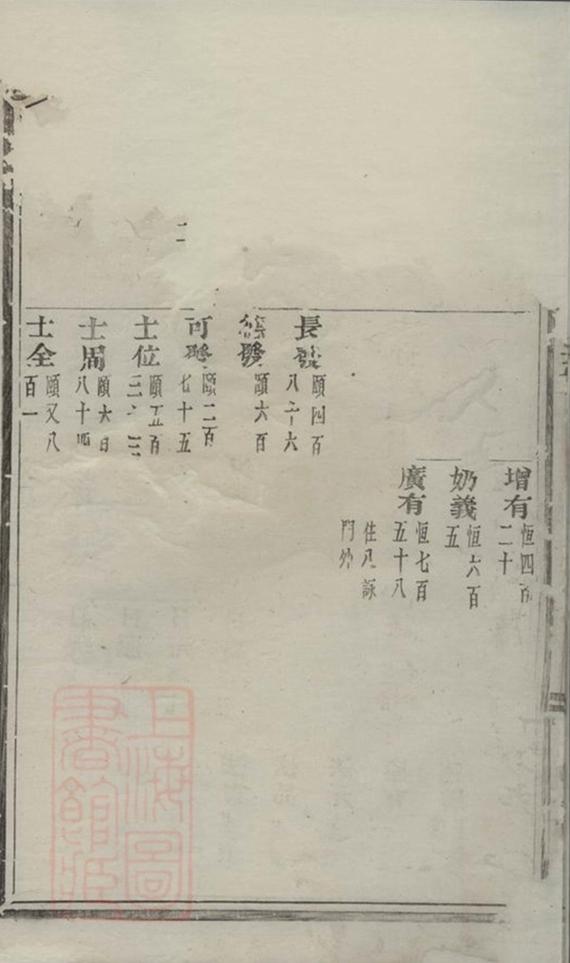 增有
恒四百
二十
奶義
恒六百
五
廣有
恒七百
五十八
門外
長發
頤四百
八十六
發
頤六百
可發
頤二百
七十五
士位
頤五百
士周
頤六百
八十四
士全
頤又八
百一
二
上海圖
書館藏